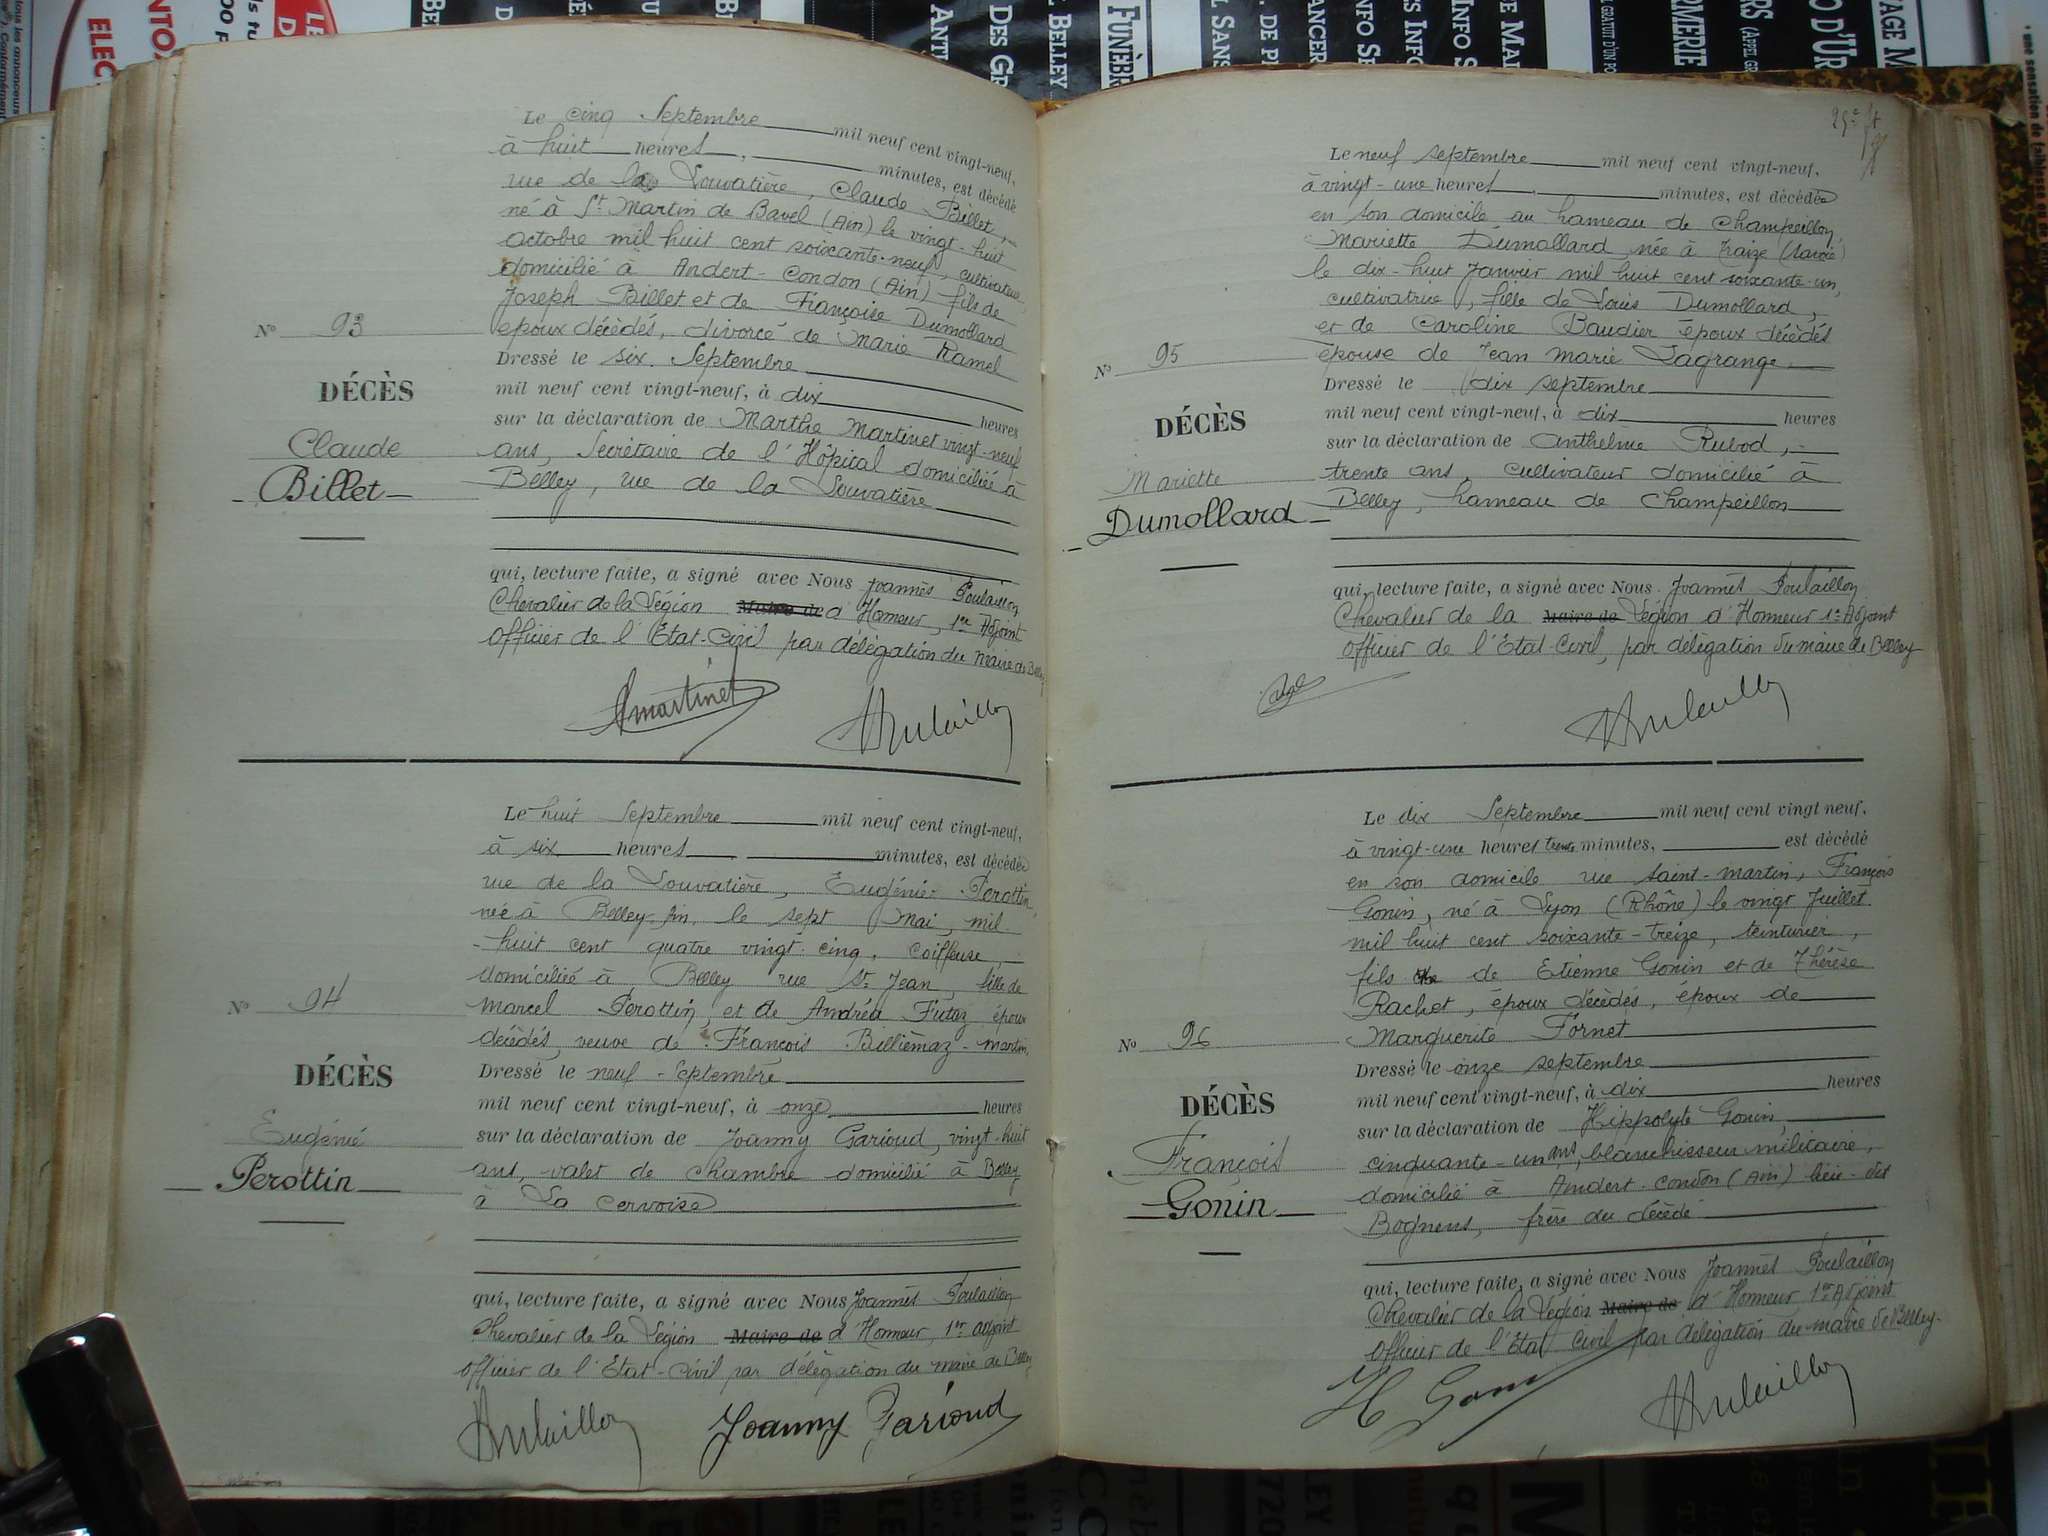 Le cinq Septembre mil neuf cent vingt-neuf,
à huit heures, minutes, est décédé
rue de la Louvatière, Claude Billet,
né à St Martin de Bavel (Ain) le vingt-huit
octobre mil huit cent soixante-neuf, cultivateur
domicilié à Andert-Condon (Ain) fils de
Joseph Billet et de Françoise Dumollard
époux décédés, divorcé de Marie Ramel
No 93
DÉCÈS
Claude
Billet
Dressé le six Septembre
mil neuf cent vingt-neuf, à dix heures
sur la déclaration de Marthe Martinet vingt-neuf
ans, Secrétaire de l'Hôpital domiciliée à
Belley, rue de la Louvatière
qui, lecture faite, a signé avec Nous Joannès Poulaillon
Chevalier de la Légion Maire de d'Honneur, 1er Adjoint
Officier de l'Etat-Civil par délégation du maire de Belley
Martinet
Poulaillon
Le huit Septembre mil neuf cent vingt-neuf,
à six heures minutes, est décédée
rue de la Louvatière, Eugénie Perottin,
née à Belley-Ain, le sept Mai, mil
huit cent quatre vingt-cinq, coiffeuse,
domiciliée à Belley rue St Jean, fille de
Marcel Perottin, et de Andréa Futaz époux
décédés, veuve de François Billiémaz-Martin
No 94
DÉCÈS
Eugénie
Perottin
Dressé le neuf Septembre
mil neuf cent vingt-neuf, à onze heures
sur la déclaration de Joanny Garioud, vingt-huit
ans, valet de chambre domicilié à Belley
à La Cervoise
qui, lecture faite, a signé avec Nous Joannès Poulaillon
Chevalier de la Légion Maire de d'Honneur, 1er adjoint
Officier de l'Etat-Civil par délégation du maire de Belley
Poulaillon
Joanny Garioud
Le neuf septembre mil neuf cent vingt-neuf,
à vingt-une heures, minutes, est décédée
en son domicile au hameau de Champeillon,
Mariette Dumollard, née à Traize (Savoie)
le dix-huit Janvier mil huit cent soixante-un,
cultivatrice, fille de Louis Dumollard,
et de Caroline Baudier époux décédés
épouse de Jean Marie Lagrange
No 95
DÉCÈS
Mariette
Dumollard
Dressé le dix septembre
mil neuf cent vingt-neuf, à dix heures
sur la déclaration de Anthelme Rubod,
trente ans, cultivateur domicilié à
Belley, hameau de Champeillon
qui, lecture faite, a signé avec Nous Joannès Poulaillon
Chevalier de la Maire de Légion d'Honneur 1er Adjoint
Officier de l'Etat-Civil, par délégation du maire de Belley
Poulaillon
Le dix Septembre mil neuf cent vingt neuf,
à vingt-une heures trente minutes, est décédé
en son domicile rue Saint-Martin, François
Gonin, né à Lyon (Rhône) le vingt Juillet
mil huit cent soixante-treize, teinturier,
fils de Etienne Gonin et de Thérèse
Rachet, époux décédés, époux de
Marguerite Fornet
No 96
DÉCÈS
François
Gonin
Dressé le onze septembre
mil neuf cent vingt-neuf, à dix heures
sur la déclaration de Hippolyte Gonin,
cinquante-un ans, blanchisseur militaire,
domicilié à Andert-Condon (Ain) lieu-dit
Bognens, frère du décédé
qui, lecture faite, a signé avec Nous Joannès Poulaillon
Chevalier de la Légion Maire de d'Honneur 1er Adjoint
Officier de l'Etat Civil par délégation du maire de Belley.
H Gonin
Poulaillon